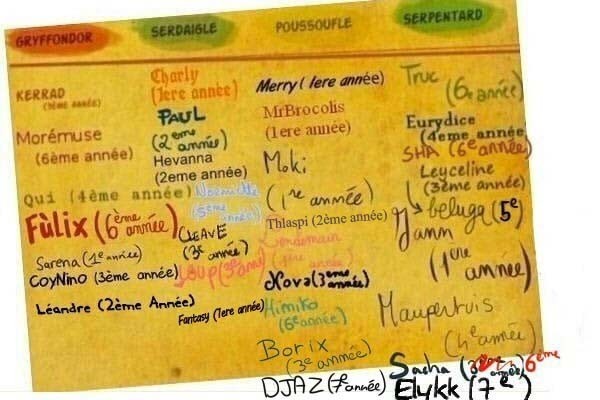 GRYFFONDOR
KERRAD
(3ème année)
Morémuse
(6ème année)
Qui (4ème année)
Fùlix (6ème année)
Sarena (1e année)
CoyNino (3ème année)
Léandre (2ème Année)
SERDAIGLE
Charly
(1ere année)
PAUL
(2eme
année)
Hevanna
(2eme année)
(5ème année)
CLEAVE
(3e année)
LOUP (3e ann)
Fantasy (1ere année)
POUSSOUFLE
Merry (1ere année)
MrBrocolis
(1ere année)
Moki
(1re année)
Thlaspi (2ème année)
Lendemain
(1ère année)
Nova (3eme année)
Himiko
(6e année)
Borix
(3e année)
DJAZ (7e année)
SERPENTARD
Truc (6e année)
Eurydice
(4eme année)
SHA (6e année)
Leyceline
(3ème année)
beluga (5e)
Yann
(1ere annee)
Maupertuis
(4e année)
Sacha (3e année) 6eme
Elykk (7e)